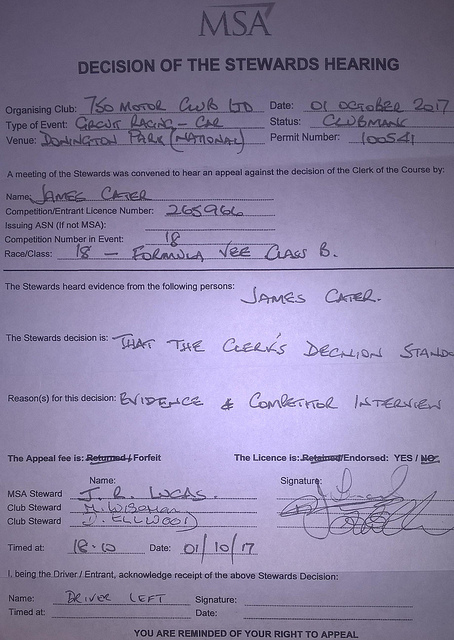 MSA
DECISION OF THE STEWARDS HEARING
Organising Club: 750 MOTOR CLUB LTD Date: 01 OCTOBER 2017
Type of Event: CIRCUIT RACING - CAR Status: CLUBMANS
Venue: DONINGTON PARK (NATIONAL) Permit Number: 100541
A meeting of the Stewards was convened to hear an appeal against the decision of the Clerk of the Course by:
Name: JAMES CATER
Competition/Entrant Licence Number: 265966
Issuing ASN (If not MSA):
Competition Number in Event: 18
Race/Class: 18 - FORMULA VEE CLASS B.
The Stewards heard evidence from the following persons: JAMES CATER.
The Stewards decision is: THAT THE CLERK'S DECISION STANDS
Reason(s) for this decision: EVIDENCE & COMPETITOR INTERVIEW
The Appeal fee is: Returned / Forfeit The Licence is: Retained/Endorsed: YES / NO
Name: Signature:
MSA Steward J. R. LUCAS.
Club Steward M. WISEMAN
Club Steward D. ELLWOOD
Timed at: 18.10 Date: 01/10/17
I, being the Driver / Entrant, acknowledge receipt of the above Stewards Decision:
Name: DRIVER LEFT Signature:
Timed at: Date:
YOU ARE REMINDED OF YOUR RIGHT TO APPEAL